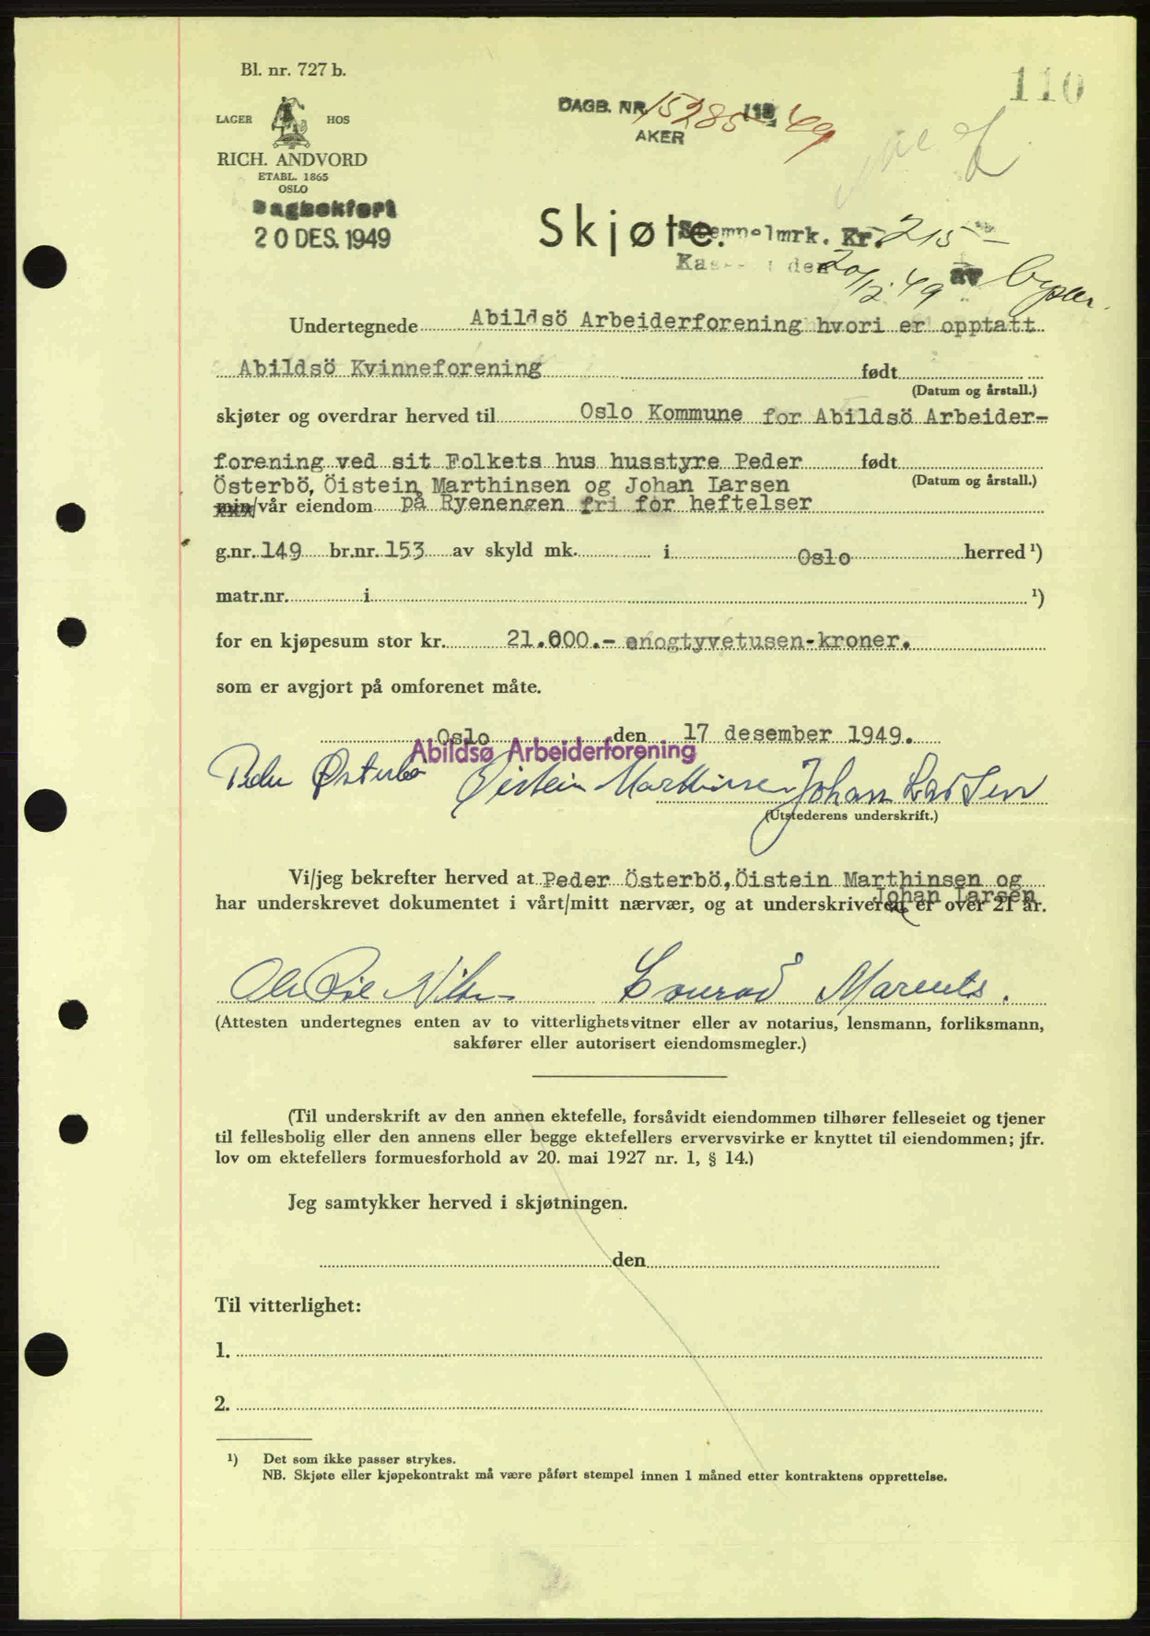 Bl. nr. 727 b.
110
LAGER HOS
RICH. ANDVORD
ETABL. 1865
OSLO
DAGB. NR. 15285 19 49
AKER
Dagbokført
20 DES. 1949
Skjøte.
Stempelmrk. Kr. 215 -
Kas den 20/12 49
Undertegnede Abildsö Arbeiderforening hvori er opptatt
Abildsö Kvinneforening født
(Datum og årstall.)
skjøter og overdrar herved til Oslo Kommune for Abildsö Arbeider-
forening ved sit Folkets hus husstyre Peder født
Österbö, Öistein Marthinsen og Johan Larsen (Datum og årstall.)
min/vår eiendom på Ryenengen fri for heftelser
g.nr. 149 br.nr. 153 av skyld mk. i Oslo herred ¹)
matr.nr. i ¹)
for en kjøpesum stor kr. 21.000.- enogtyvetusen-kroner.
som er avgjort på omforenet måte.
Oslo den 17 desember 1949.
Abildsø Arbeiderforening
Peder Østerbø Øistein Marthinsen Johan Larsen
(Utstederens underskrift.)
Vi/jeg bekrefter herved at Peder Österbö, Öistein Marthinsen og
Johan Larsen
har underskrevet dokumentet i vårt/mitt nærvær, og at underskriveren er over 21 år.
Conrad
(Attesten undertegnes enten av to vitterlighetsvitner eller av notarius, lensmann, forliksmann,
sakfører eller autorisert eiendomsmegler.)
(Til underskrift av den annen ektefelle, forsåvidt eiendommen tilhører felleseiet og tjener
til fellesbolig eller den annens eller begge ektefellers ervervsvirke er knyttet til eiendommen; jfr.
lov om ektefellers formuesforhold av 20. mai 1927 nr. 1, § 14.)
Jeg samtykker herved i skjøtningen.
den
Til vitterlighet:
1.
2.
¹) Det som ikke passer strykes.
NB. Skjøte eller kjøpekontrakt må være påført stempel innen 1 måned etter kontraktens opprettelse.